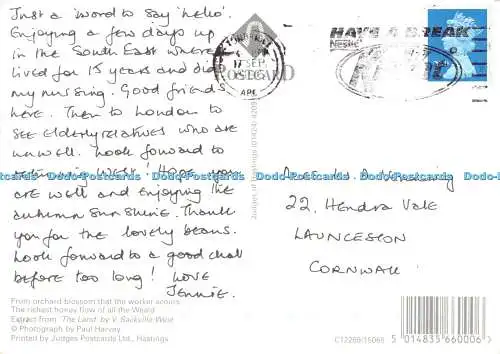 Just a word to say 'hello'.
Enjoying a few days up
in the South East where I
lived for 15 years and did
my nursing. Good friends
here. Then to London to
see elderly relatives who are
unwell. Look forward to
next week. Hope you
are well and enjoying the
autumn sunshine. Thank
you for the lovely beans.
Look forward to a good chat
before too long! Love
Jennie.
From orchard blossom that the worker scours
The richest honey flow of all the Weald
Extract from 'The Land' by V. Sackville-West
© Photograph by Paul Harvey
Printed by Judges Postcards Ltd., Hastings
POSTCARD
17 SEP
HAVE A BREAK
Nestlé
Judges of Hastings (01424) 4209
22, Hendra Vale
LAUNCESTON
CORNWALL
C12269/15066
5 014835 660006
Dodo-Postcards.com Dodo-Postcards.com Dodo-Postcards.com Dodo-Postcards.com Dodo-Postcards.com